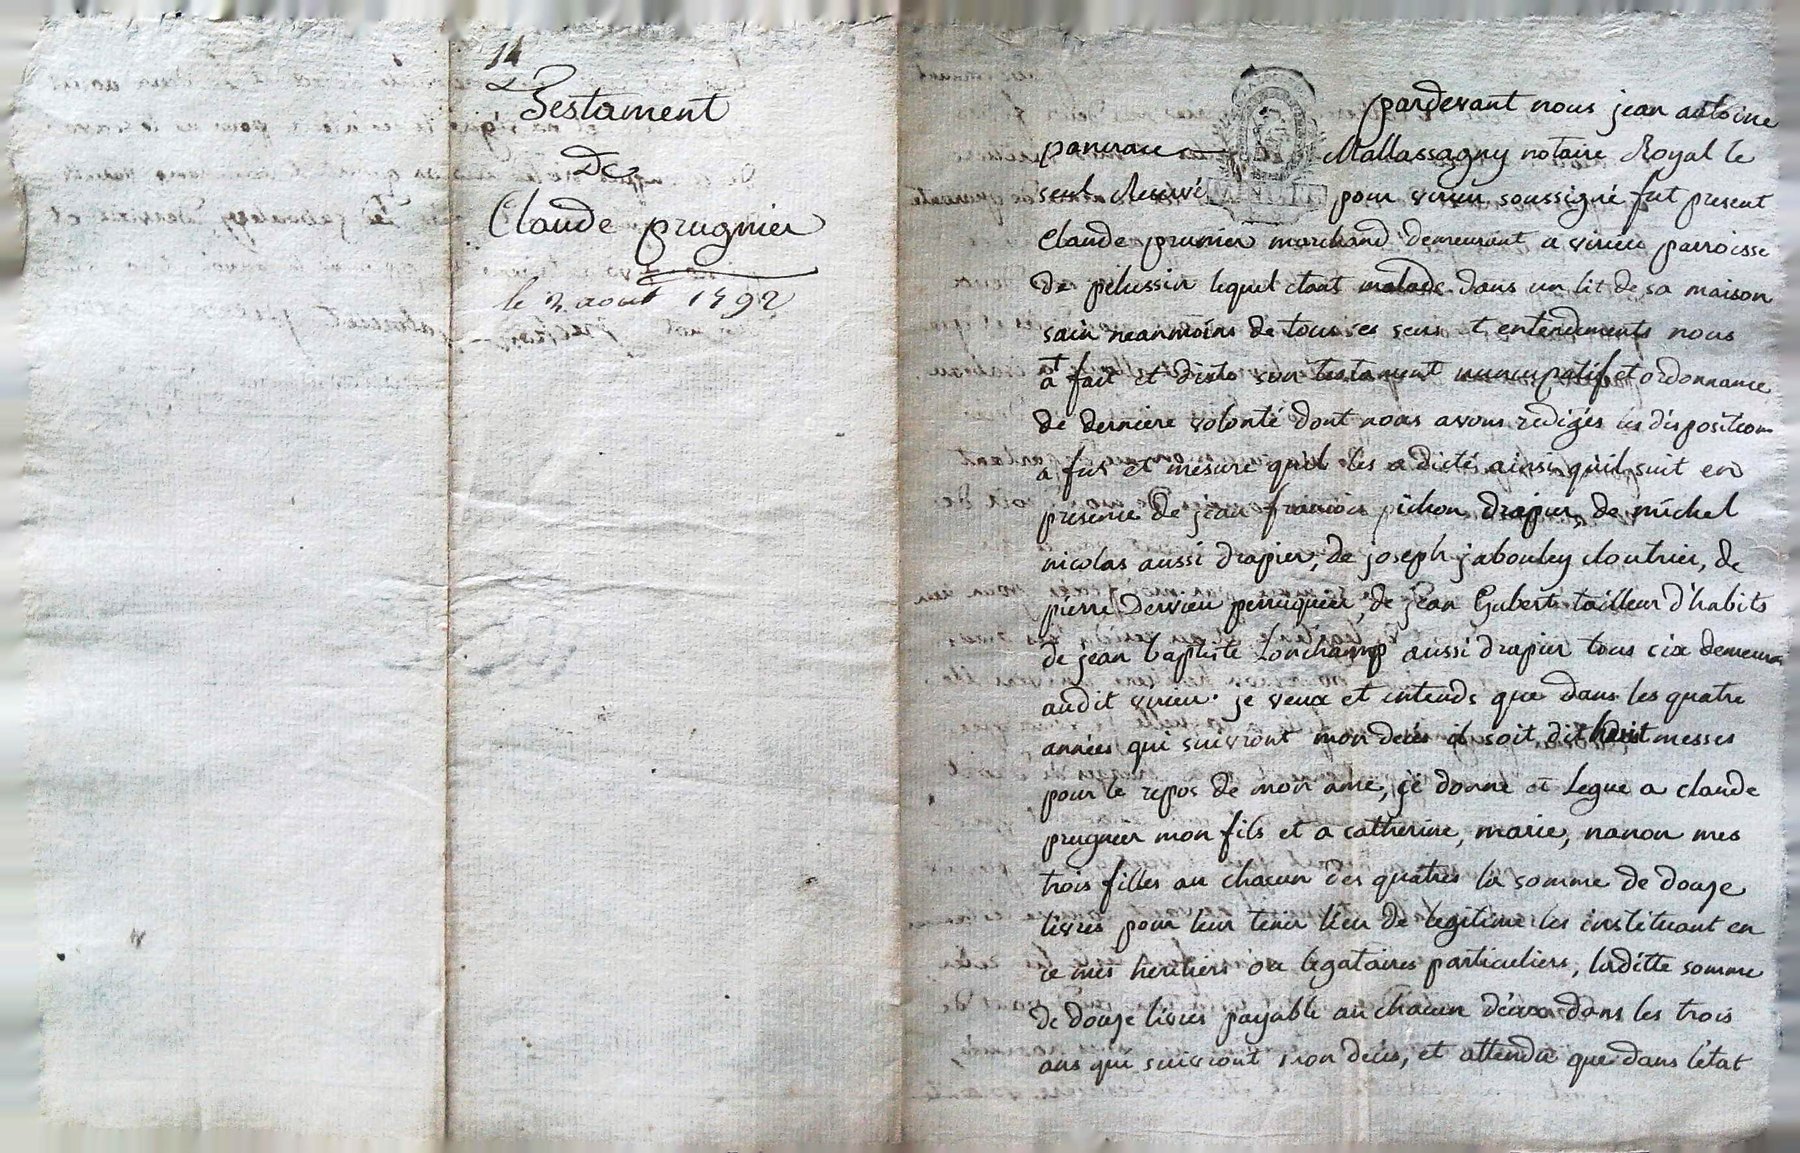 14
Testament
De
Claude prugnier
le 2 aout 1792
pardevant nous jean antoine
pancrace Mallassagny notaire Royal le
seul Reservé pour virieu soussigné fut present
Claude prunier marchand demeurant a virieu parroisse
de pelussin lequel etant malade dans un lit de sa maison
sain neanmoins de tous ses sens et entendements nous
at fait et dicté son testament nuncupatif et ordonnance
de derniere volonté dont nous avons redigés les disposition
a fur et mesure quil les a dictés ainsi quil suit en
presence de jean francois pichon drapier, de michel
nicolas aussi drapier, de joseph jabouley cloutrier, de
pierre Dervieu perruquier, de jean Gubert tailleur d'habits
de jean baptiste Lonchamp aussi drapier tous six demeurs
audit virieu. je veux et entends que dans les quatre
années qui suivront mon decés il soit dit huit messes
pour le repos de mon ame, je donne et Legue a claude
prugnier mon fils et a catherine, marie, nanon mes
trois filles au chacun des quatres la somme de douze
livres pour leur tenir lieu de legitime les instituant en
ce mes heritiers ou legataires particuliers, laditte somme
de douze livres payable au chacun d'eux dans les trois
ans qui suivront mon decés, et attendu que dans l'état